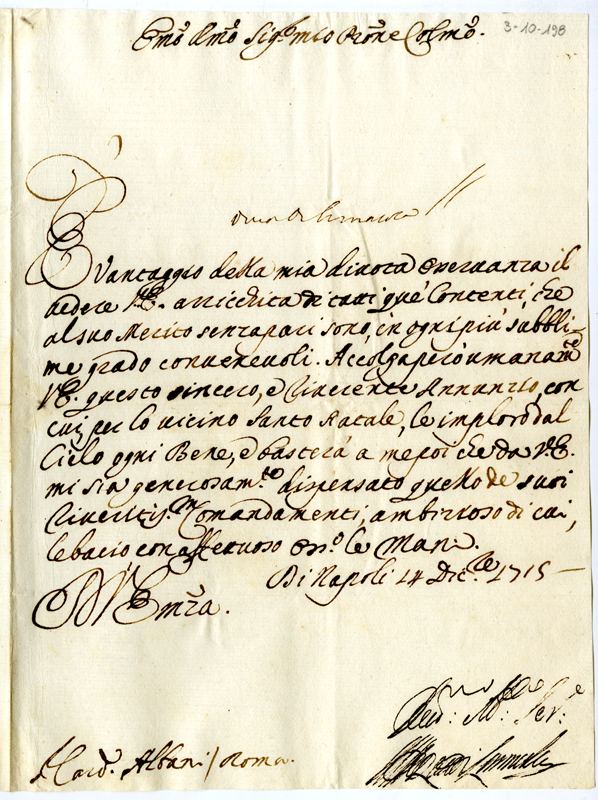 3-10-198
Emo Rmo Sigr mio Prone Colmo.
È Vantaggio della mia divota Osservanza il
vedere V.E. arricchita di tutti que' Contenti, che
al suo Merito senza pari sono, in ogni più subbli-
me grado convenevoli. Accolga però umanamte
V.E. questo sincero, e riverente Annunzio, con
cui per lo vicino Santo Natale, le imploro dal
Cielo ogni Bene, e basterà a me poi che da V.E.
mi sia generosamte dispensato quello de' suoi
riveritismi Comandamenti, ambizioso di cui,
le bacio con affettuoso Ossqo le Mani.
Di Napoli 14 Dice 1715
D V Emza.
Card. Albani / Roma.
Serve